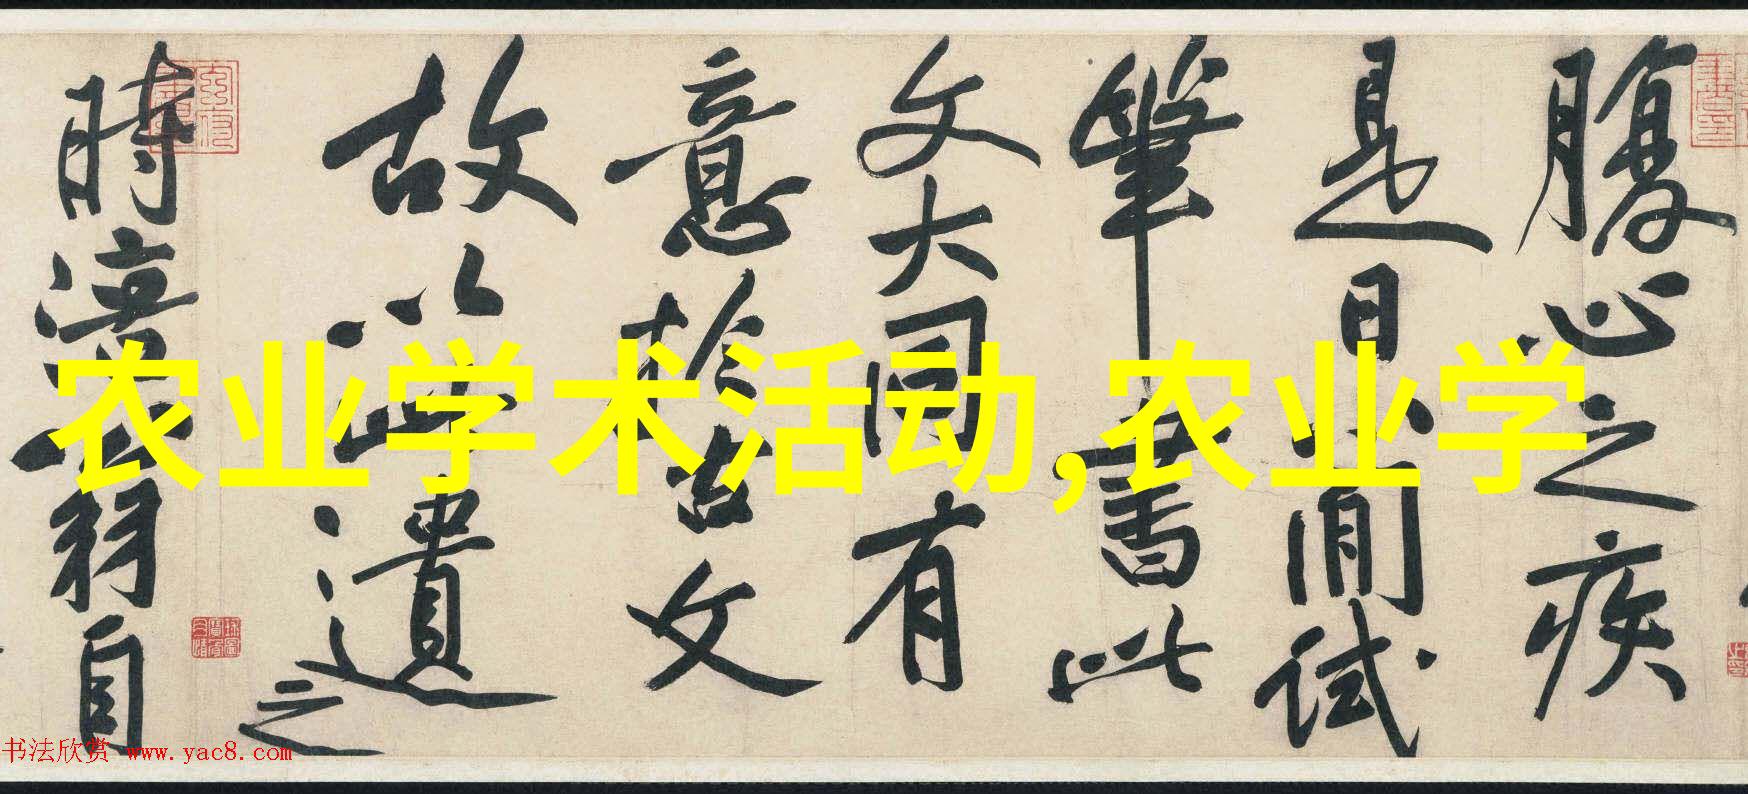 农业学术活动,农业学
腹心之疾
是日小閒試
筆書此
文大同有
意於古文
故以此遺之
時涪翁自
书法欣赏 www.yac8.com